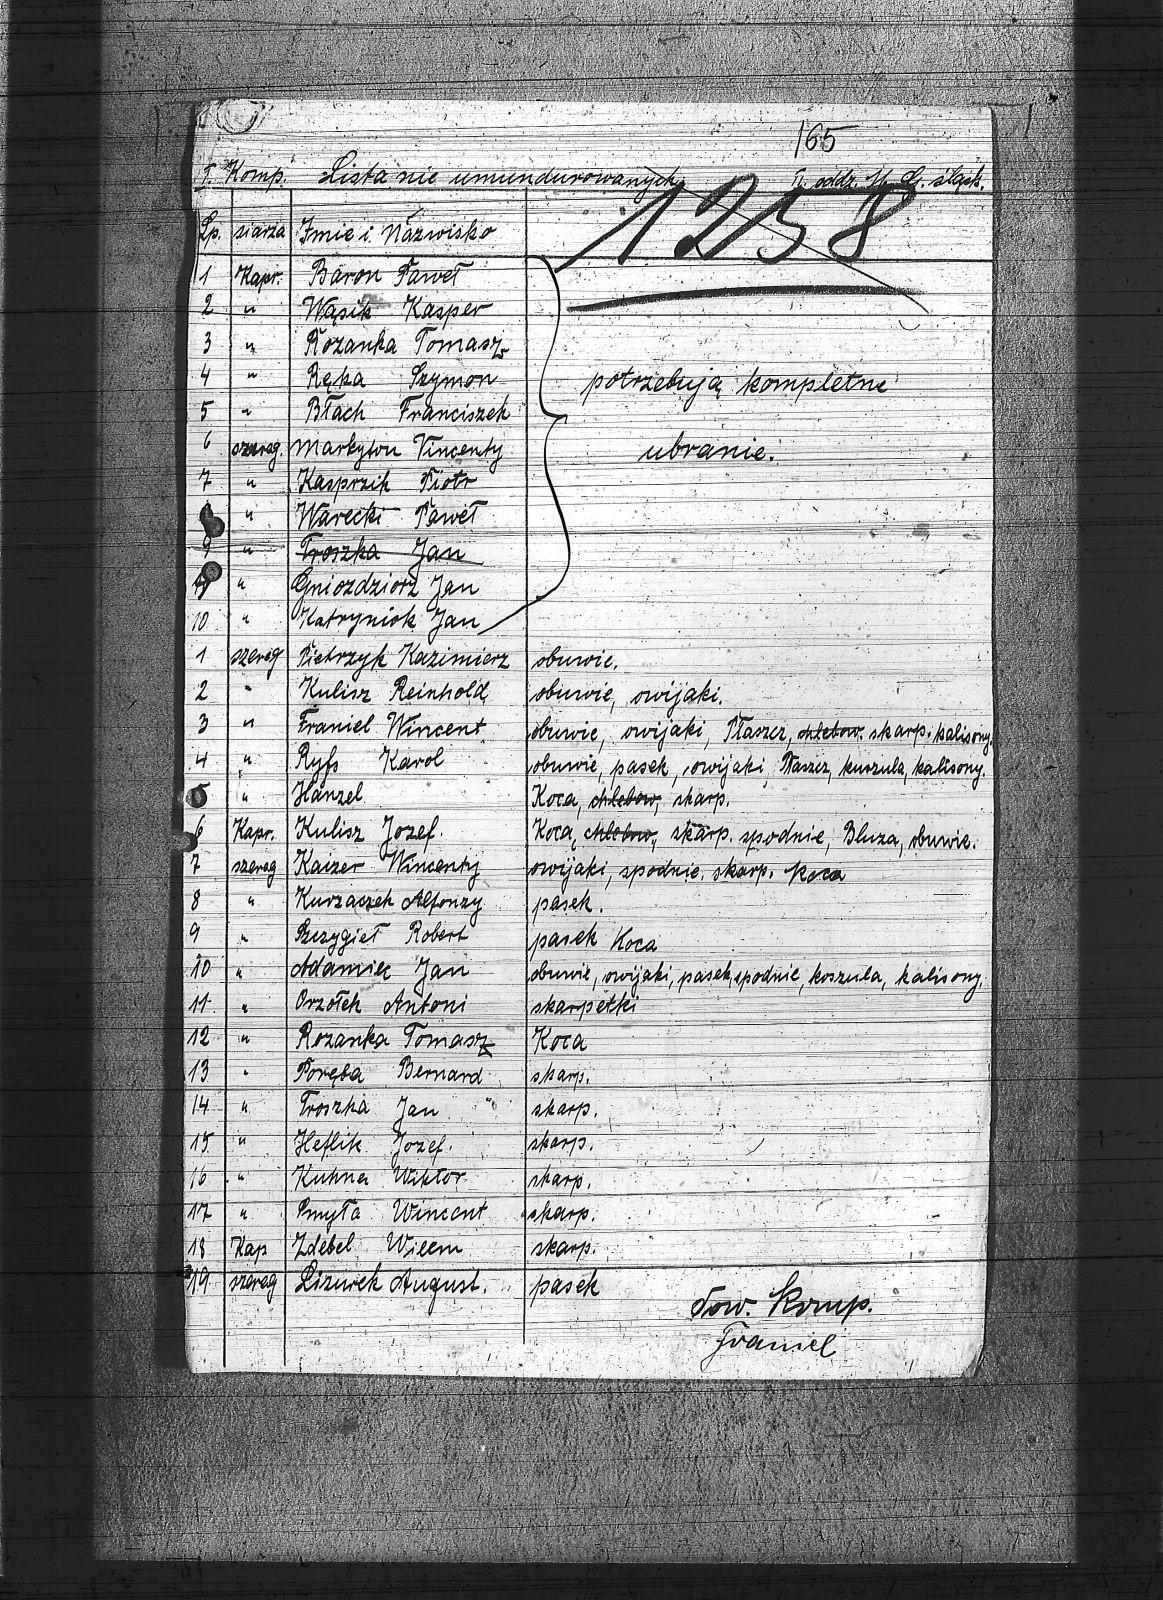 165
I. Komp. Lista nie umundurowanych II. oddz. G. śląsk.
1258
Lp. siarża Imie i Nazwisko
1 Kapr. Baron Paweł
2 " Wąsik Kasper
3 " Rozanka Tomasz
4 " Ręka Szymon
potrzebują kompletne
5 " Błach Franciszek
6 szereg. Markyton Vincenty
ubranie.
7 " Kasprzik Piotr
" Warecki Paweł
9 " Troszka Jan
" Gniozdziorz Jan
10 " Katryniok Jan
1 szereg Pietrzyk Kazimierz obuwie.
2 " Kulisz Reinhold obuwie, owijaki.
3 " Franiel Wincent obuwie, owijaki, Płaszcz, chlebow. skarp. kalisony.
4 " Ryfs Karol obuwie, pasek, owijaki, Płaszcz, kuszula, kalisony.
5 " Hänzel Koca, chlebow, skarp.
6 Kapr. Kulisz Jozef. Kocą, chlebow, skarp. spodnie, Bluza, obuwie.
7 szereg Kaczer Wincenty owijaki, spodnie, skarp. koca
8 " Kurzaczek Alfonzy pasek.
9 " Szczygieł Robert pasek Koca
10 " Adamiec Jan obuwie, owijaki, pasek, spodnie, koszula, kalisony.
11 " Orzołek Antoni skarpetki
12 " Rozanka Tomasz Koca
13 " Poręba Bernard skarp.
14 " Troszka Jan skarp.
15 " Heflik Jozef. skarp.
16 " Kuhna Wiktor skarp.
17 " Smyła Wincent skarp.
18 Kap Zdebel Wilem skarp.
19 szereg Lizurek August. pasek
Dow. Komp.
Franiel